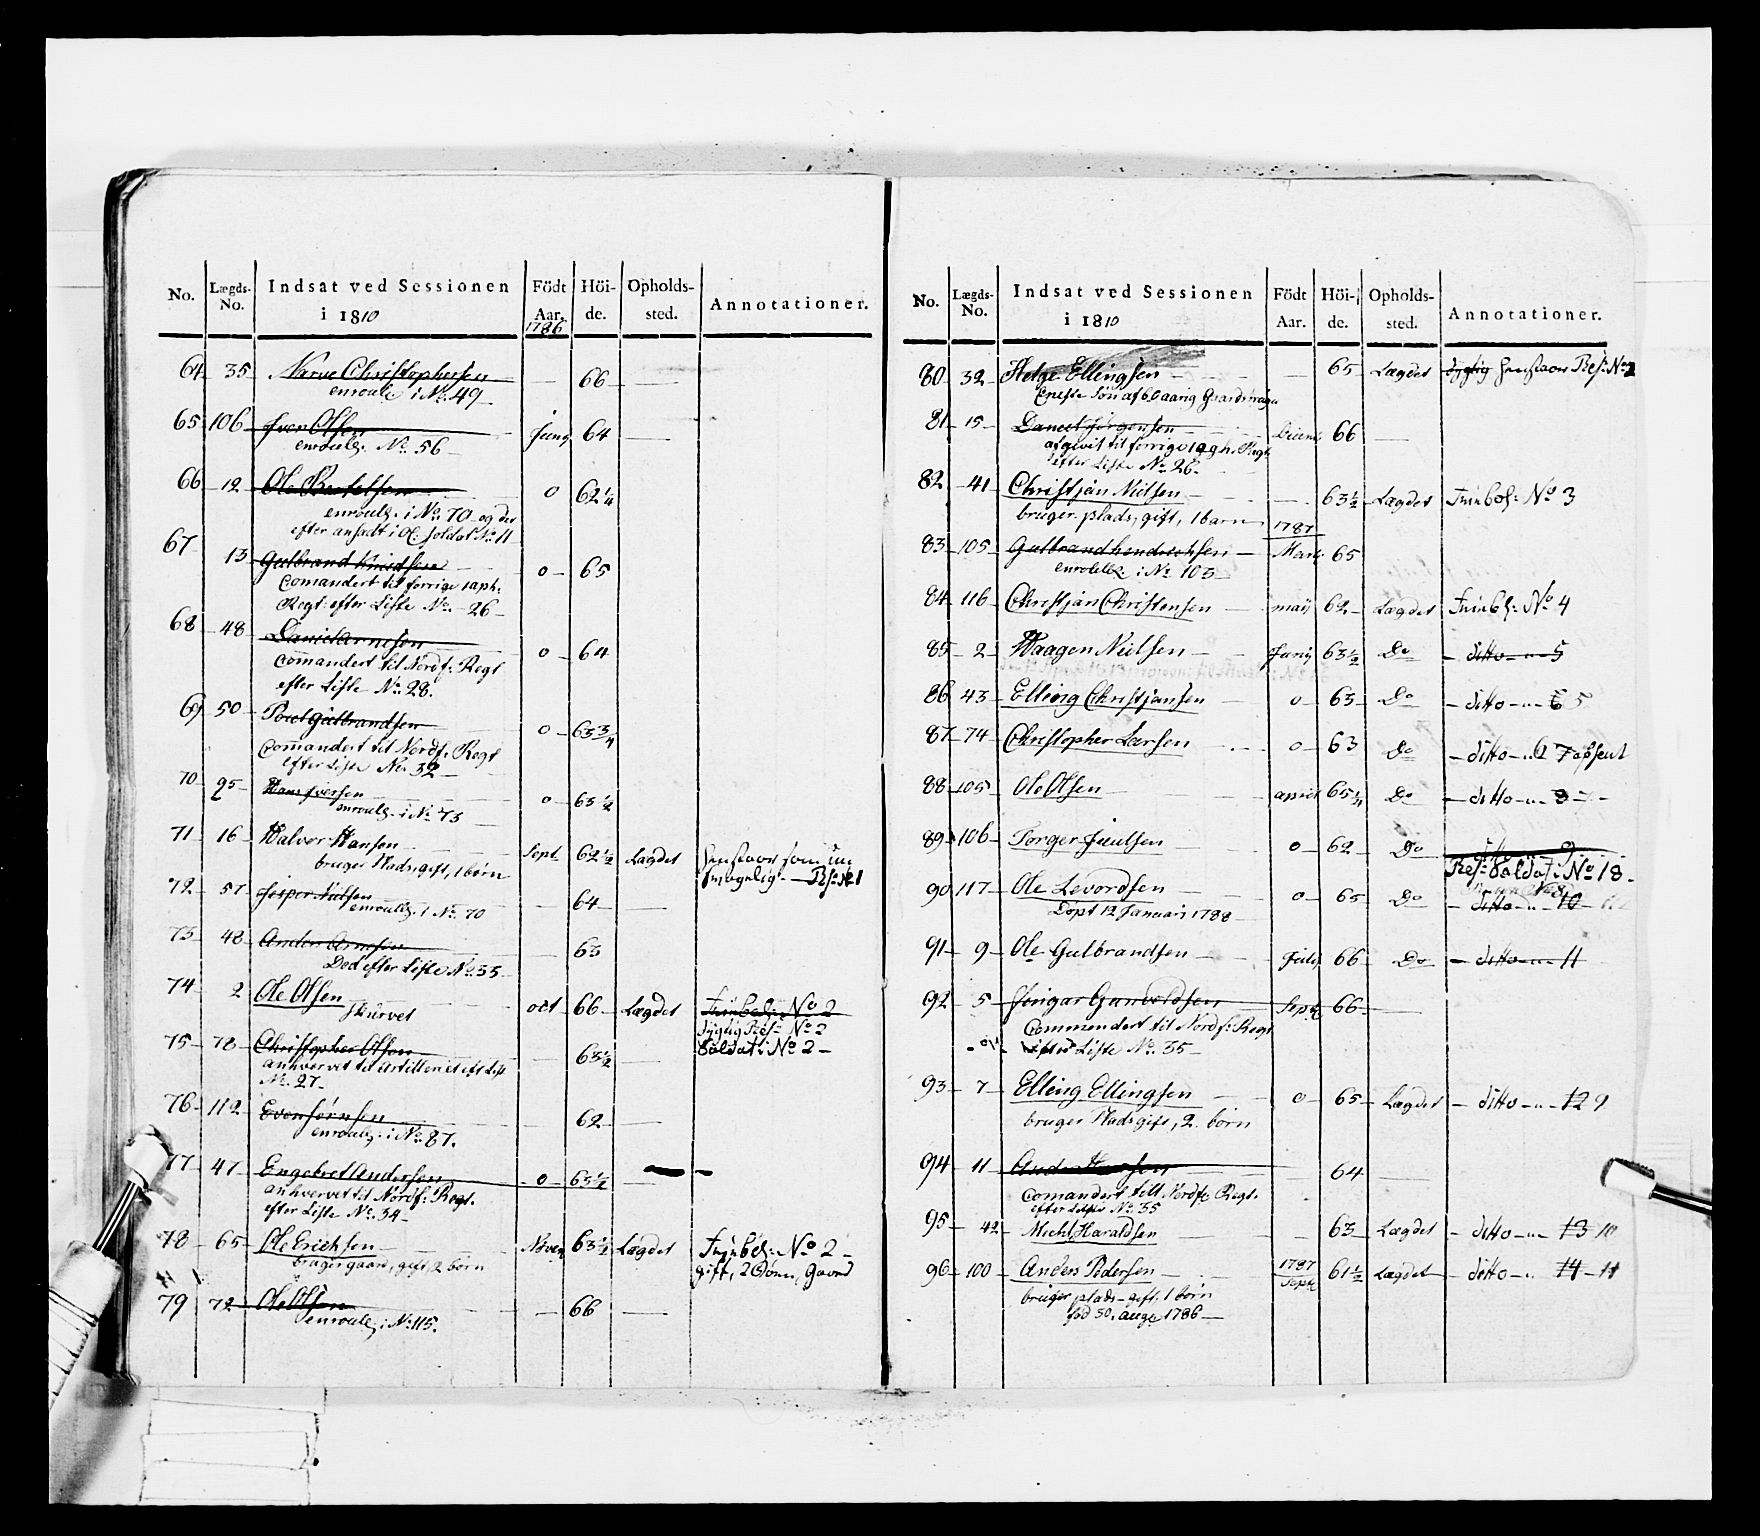 No. Lægds-No. Indsat ved Sessionen i 1810 Födt Aar. Höi-de. Opholds-sted. Annotationer.
1786
64 35 Narve Christophersen — 66 —
enroule i No. 49
65 106 Iver Olsen Junj 64 —
enroulg. No. 56
66 12 Ole Bertelsen o 62 1/4
enroulg. i No. 70 og der
efter ansadt i Ol: Soldat No. 11
67 13 Gulbrand Knudsen o 65
Comandert til forrige
Regt. efter Liste No. 26
68 48 Daniel Arnesen o 64
Comandert til Nordf: Regt
efter Liste No. 28.
69 50 Poul Gulbrandsen o 63 3/4
Comandert til Nordf: Regt
efter Liste No. 32
70 95 Hans Iversen o 63 1/2
enroulg. i No. 73
71 16 Halvor Hansen Sept 62 1/2 Lægdet
bruger Plads, gift, 1 børn
72 57 Jesper Nielsen — 64 —
enroulg. i No. 70
73 48 Anders Arnesen — 63
Død efter Liste No. 33
74 2 Ole Olsen oct 66 Lægdet No 2
Skurvet dygtig Res: No 2
Soldat i No 2
75 78 Christopher Olsen — 63 1/2 —
anhvervet til Artilleriet eft List
No. 27
76 112 Even Jörnsen 62
enroulg. i No. 87.
77 47 Engebret Andersen o 63 1/2 —
anhvervet til Nordf: Regt.
efter Liste No. 34
78 65 Ole Erichsen Noven 63 1/2 Lægdet No 2
bruger gaard, gift, 2 børn gift, 2 Gaard
79 72 Ole Olsen — 66 —
enroulg. i No. 115.
No. Lægds-No. Indsat ved Sessionen i 1810 Födt Aar. Höi-de. Opholds-sted. Annotationer.
80 32 Helge Ellingsen — 65 Lægdet dygtig Res: No 1
Eneste Søn af 60 aarig Gaardmand
81 15 Daniel Jörgensen 66 —
afgivet til forrige Regt
efter Liste No. 26
82 41 Christján Nielsen — 63 1/2 Lægdet No 3
bruger plads, gift, 1 barn
1787
83 105 Gulbrand Hendrichsen Marti 65
enroulg. i No. 103
84 116 Christján Christensen maij 62 Lægdet No 4
85 2 Haagen Nielsen Junij 63 1/2 Do ditto 5
86 43 Elling Christjansen o 63 Do ditto 6 5
87 74 Christopher Larsen o 63 Do ditto 6 7 absent
88 105 Ole Olsen april 65 1/4 Do ditto 8 7
89 106 Torger Juulsen o 62 Do 9
Res: Soldat No 18
90 117 Ole Levordsen o 65 Do ditto 10
Döpt 12 Januari 1788
91 9 Ole Gulbrandsen Julij 66 Do ditto 11
92 5 Gunvoldsen Sept 66 —
Commendert til Nordf: Regt
efter Liste No. 35
93 7 Elling Ellingsen o 65 Lægdet ditto 12 9
bruger Plads gift, 2 børn
94 11 Anders Hansen 64 —
Comandert till Nordf: Regt.
efter Liste No. 35
95 42 Michl Haraldsen — 63 Lægdet ditto 13 10
96 100 Anders Pedersen 1787 Sept 61 1/2 Lægdet ditto 14 11
bruger plads gift. 1 børn
fød 30. aug. 1786